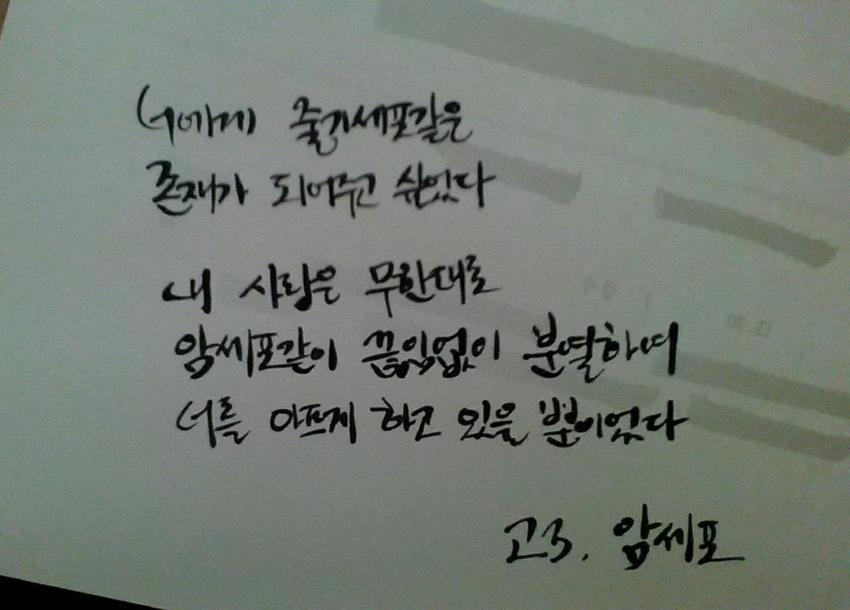 너에게 줄기세포같은
존재가 되어주고 싶었다
내 사랑은 무한대로
암세포같이 끊임없이 분열하며
너를 아프게 하고 있을 뿐이었다
고3, 암세포